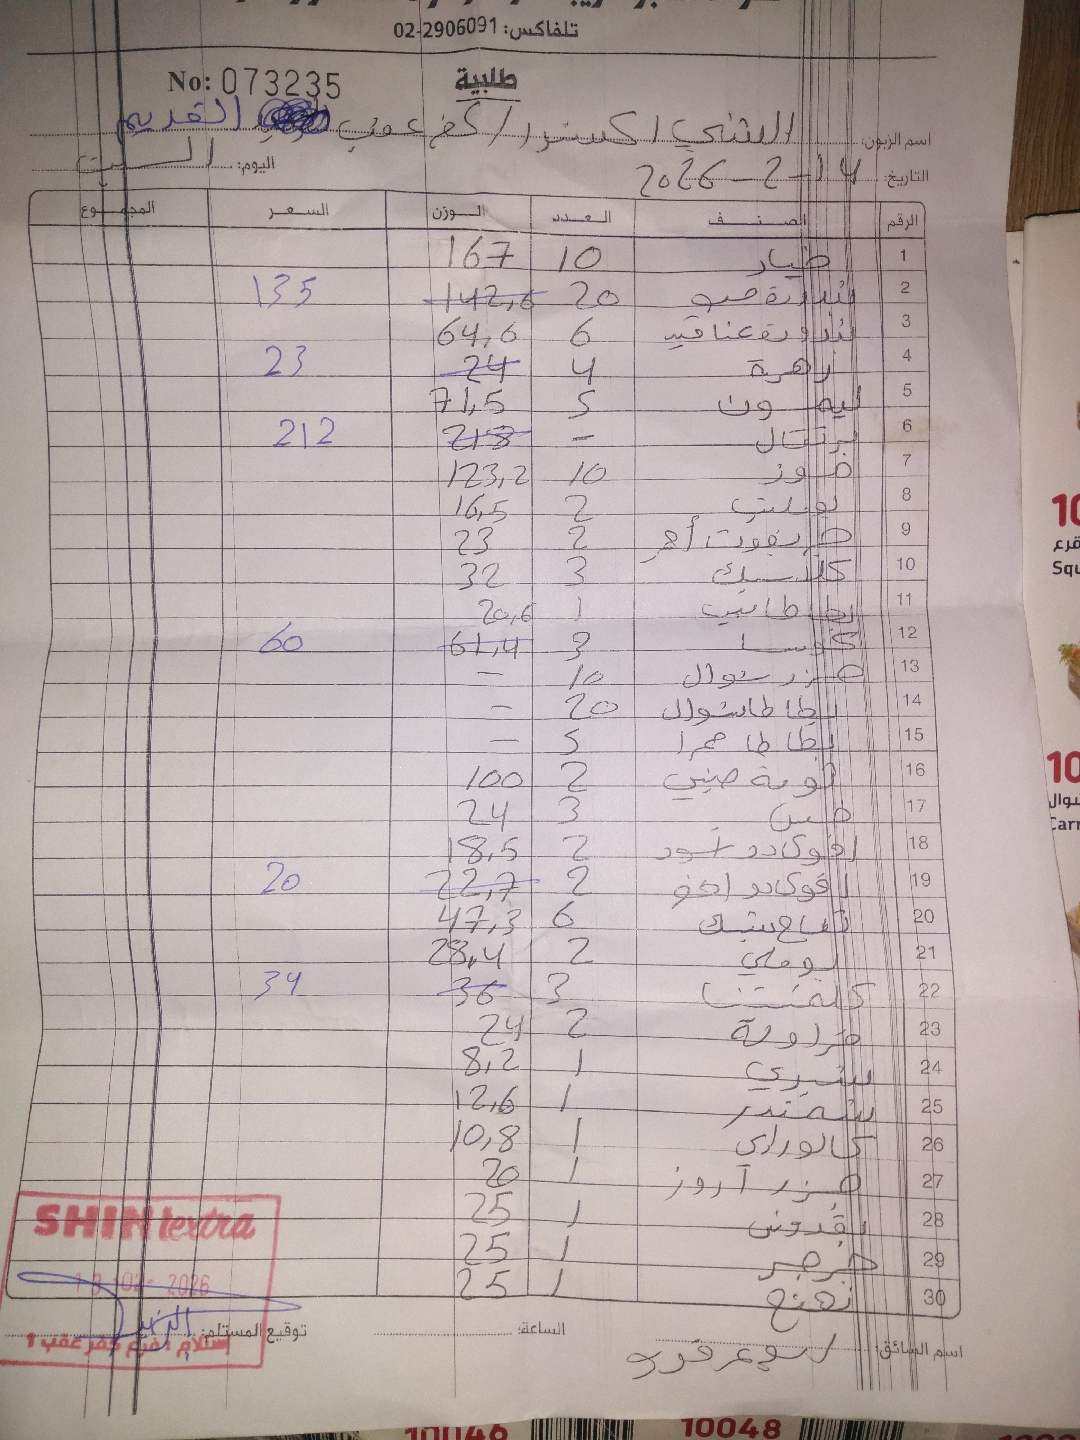 تلفاكس: 02-2906091
No: 073235
طلبية
اسم الزبون: الشني اكسترا / كفر عقب القديم
التاريخ: 14-2-2026 اليوم: السبت
الرقم الصنف العدد الوزن السعر المجموع
1 خيار 10 167
2 بندورة 20 142,6 135
3 بندورة عناقيد 6 64,6
4 زهرة 4 24 23
5 ليمون 5 71,5
6 برتقال - 218 212
7 موز 10 123,2
8 2 16,5
9 2 23
10 3 32
11 1 20,6
12 كوسا 3 61,4 60
13 جزر شوال 10 -
14 بطاطا شوال 20 -
15 بطاطا حمرا 5 -
16 ثومة صيني 2 100
17 خس 3 24
18 افوكادو اسود 2 18,5
19 افوكادو 2 22,7 20
20 تفاح ستيك 6 47,3
21 بوملي 2 28,4
22 كلمنتينا 3 36 34
23 فراولة 2 24
24 شيري 1 8,2
25 شمندر 1 12,6
26 1 10,8
27 جزر 1 20
28 بقدونس 1 25
29 جرجير 1 25
30 نعنع 1 25
SHINI extra
13 -02- 2026
إستلام مفرع كفر عقب 1
اسم السائق: الساعة: توقيع المستلم:
10
قرع
Squ
10
شوال
Carr
10046
10048